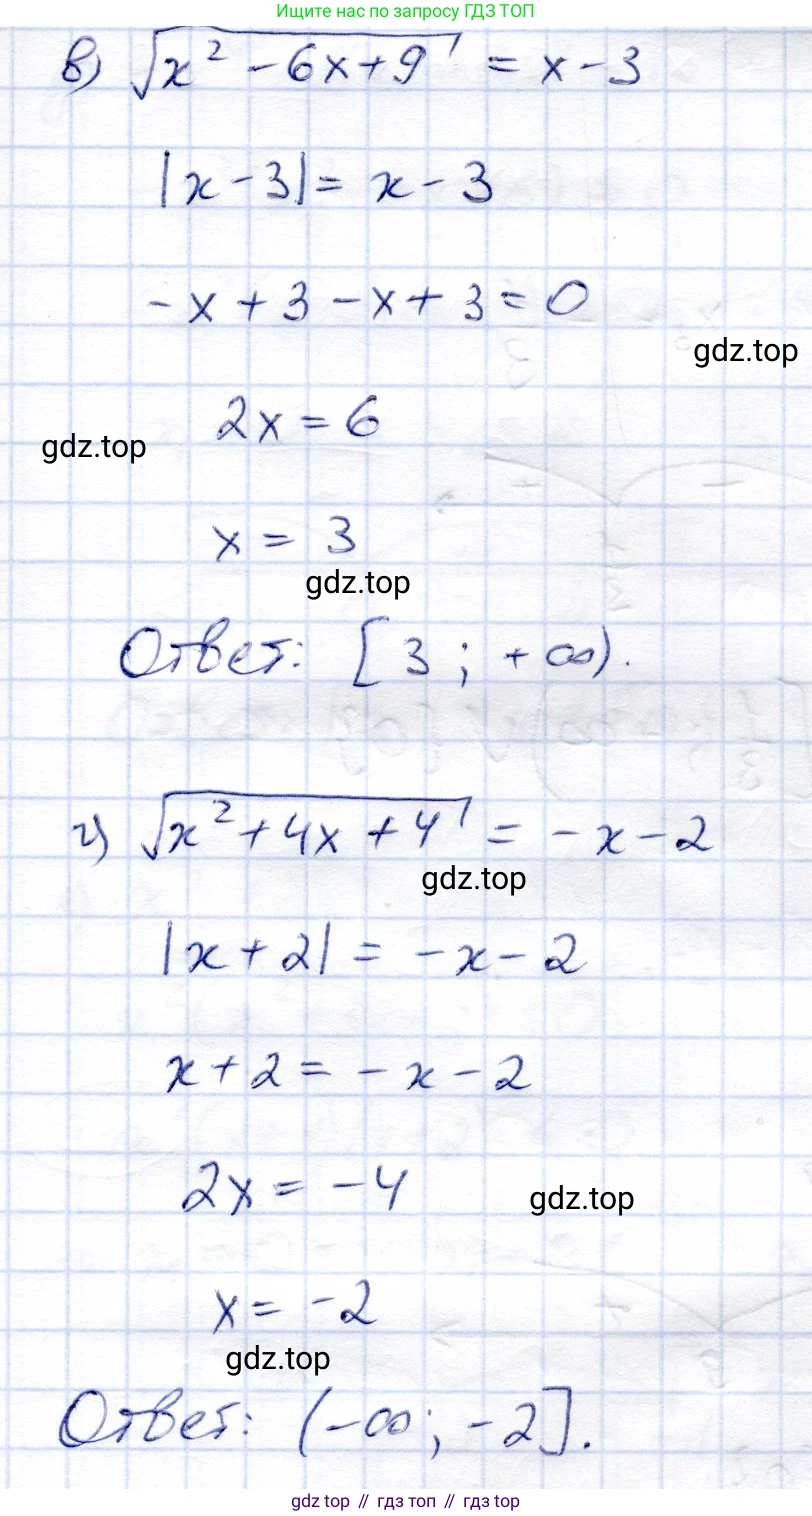 Ищите нас по запросу ГДЗ ТОП
в) √(x² - 6x + 9) = x - 3
|x - 3| = x - 3
- x + 3 - x + 3 = 0
gdz.top
2x = 6
gdz.top
x = 3
gdz.top
Ответ: [3; +∞).
г) √(x² + 4x + 4) = - x - 2
gdz.top
|x + 2| = - x - 2
x + 2 = - x - 2
2x = - 4
gdz.top
x = - 2
gdz.top
Ответ: (-∞; -2].
gdz top // гдз топ // gdz top